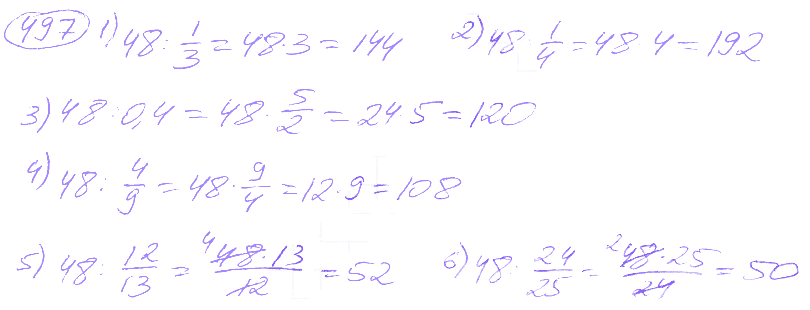 497 1) 48 : 1/3 = 48·3 = 144 2) 48 : 1/4 = 48 4 = 192
3) 48 : 0,4 = 48 · 5/2 = 24·5 = 120
4) 48 : 4/9 = 48 · 9/4 = 12·9 = 108
5) 48 : 12/13 = 4 48·13/12 = 52 6) 48 : 24/25 = 2 48·25/24 = 50